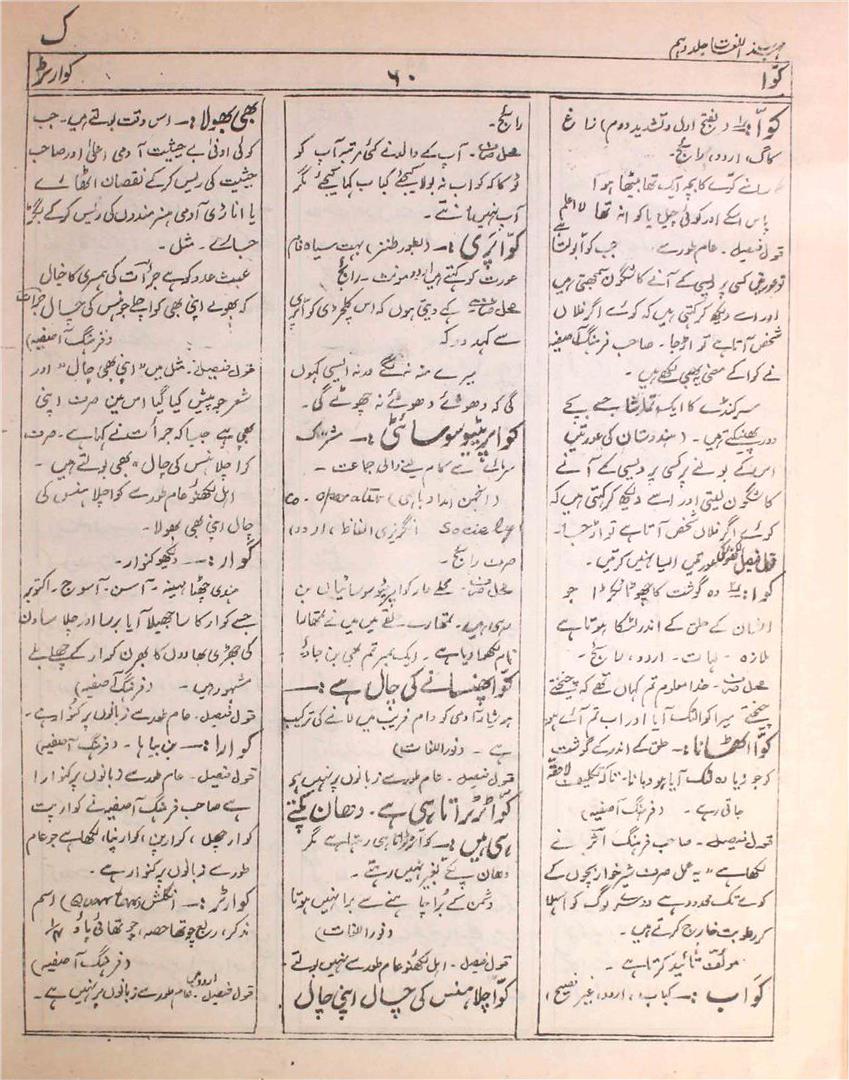 ک
مہذب اللغات جلد دہم
کوّا
۶۰
کوارٹر
کوّا :۔ (بفتح اول و تشدید دوم) زاغ
کاگ، اردو، رائج۔
نے کوّے کا بچہ ایک تھا بیٹھا ہوا
پاس اسکے اور کوئی چیل یا کوا نہ تھا لا اعلم
قول فیصل۔ عام طور سے جب کوّا بولتا ہے
تو عورتیں کسی پردیسی کے آنے کا شگون سمجھتی ہیں
اور اسے دیکھ کر کہتی ہیں کہ کوّے اگر فلاں
شخص آتا ہے تو اڑ جا۔ صاحب فرہنگ آصفیہ
نے کوا کے معنی یہ بھی لکھے ہیں۔
سرکنڈے کا ایک تماشا جسے بچے
دور پھینکتے ہیں۔ (ہندوستان کی عورتیں
اس کے بولنے پر کسی پردیسی کے آنے
کا شگون لیتی اور اسے دیکھ کر کہتی ہیں کہ
کوّے اگر فلاں شخص آتا ہے تو اڑ جا۔
قول فیصل لکھنؤ کی عورتیں ایسا نہیں کرتیں۔
کوا :۔ وہ گوشت کا چھوٹا ٹکڑا جو
انسان کے حلق کے اندر لٹکا ہوتا ہے
ملازہ۔ لہات۔ اردو، رائج۔
محل صرف۔ خدا معلوم تم کہاں تھے کہ چیختے
چیختے میرا کوا لٹک آیا اور اب تم آئے ہو
کوّا اٹھانا :۔ حلق کے اندر کے گوشت
کو جو زیادہ لٹک آیا ہو دبانا۔ تاکہ تکلیف لاحقہ
جاتی رہے۔ (فرہنگ آصفیہ)
قول فیصل۔ صاحب فرہنگ اثر نے
لکھا ہے "یہ عمل صرف شیرخوار بچوں کے
کوے تک محدود ہے دوسرے لوگ کوا اٹھا
کر رطوبت خارج کرتے ہیں۔
مولف تائید کرتا ہے۔
کواب :۔ کباب، اردو، غیر فصیح،
رائج۔
محل صرف۔ آپ کے والد نے کئی مرتبہ آپ کو
ٹوکا کہ کواب نہ بولا کیجئے کباب کہا کیجئے مگر
آپ نہیں مانتے۔
کوّا پری :۔ (بطور طنز) بہت سیاہ فام
عورت کو کہتے ہیں اردو مونث۔ رائج
محل صرف کہے دیتی ہوں کہ اس کلچڑی کوّا پری
سے کہہ دو کہ
میرے منہ نہ لگے ورنہ ایسی کہوں
گی کہ دھوئے دھوئے نہ چھوٹے گی۔
کوآپریٹیو سوسائٹی :۔ مشترک
سرمائے سے کام لینے والی جماعت۔
(انجمن امداد باہمی) Co-operativ
Society انگریزی الفاظ، اردو،
صرف رائج۔
محل صرف۔ محلے وار کوآپریٹیو سوسائٹیاں بن
رہی ہیں۔ تمہارے حلقے میں میں نے تمہارا
نام لکھا دیا ہے۔ ایک ممبر تم بھی بن جاؤ
کوّا پھنسانے کی چال ہے :۔
ہوشیار آدمی کو دام فریب میں لانے کی ترکیب
ہے۔ (نوراللغات)
قول فیصل۔ عام طور سے زبانوں پر نہیں ہے
کوّا ٹرٹراتا ہی ہے۔ دھان پکتے
ہی ہیں :۔ کوا ٹرٹراتا ہی رہتا ہے مگر
دھان پکے بغیر نہیں رہتے۔
دشمن کے برا چاہنے سے برا نہیں ہوتا
(نوراللغات)
قول فیصل۔ اہل لکھنؤ عام طور سے نہیں بولتے۔
کوّا چلا ہنس کی چال اپنی چال
بھی بھولا :۔ اس وقت بولتے ہیں۔ جب
کوئی ادنیٰ بے حیثیت آدمی اعلیٰ اور صاحب
حیثیت کی ریس کرکے نقصان اٹھائے
یا اناڑی آدمی ہنرمندوں کی ریس کرکے بگڑ
جائے۔ مثل۔
عبث عدو کو ہے جرأت کی ہمسری کا خیال
کہ بھولے اپنی بھی کوا چلے جو ہنس کی چال جرأت
(فرہنگ آصفیہ)
قول فیصل۔ مثل میں "اپنی بھی چال" اور
شعر جو پیش کیا گیا اس میں صرف اپنی
بھی ہے جیسا کہ جرأت نے کہا ہے۔ صرف،
کوا چلا ہنس کی چال" بھی بولتے ہیں۔
اہل لکھنؤ عام طور سے کوا چلا ہنس کی
چال اپنی بھی بھولا۔
کوار :۔ دیکھو کنوار۔
ہندی چھٹا مہینہ۔ آسن۔ آسوج۔ اکتوبر
جسے کوار کا سا جھیلا آیا برسا اور چلا ساون
کی جھڑی بھادوں کا بھرن کوار کے جھالے
مشہور ہیں۔ (فرہنگ آصفیہ)
قول فیصل۔ عام طور سے زبانوں پر کنوار ہے۔
کوارا :۔ بن بیاہا۔ (فرہنگ آصفیہ)
قول فیصل۔ عام طور سے زبانوں پر کنوارا
ہے صاحب فرہنگ آصفیہ نے کوارپت
کوارچھل، کوارپن، کوارپنا، لکھا ہے جو عام
طور سے زبانوں پر کنوار ہے۔
کوارٹر :۔ انگلش (Quarter) اسم
مذکر، ربع چوتھا حصہ، چوتھائی پاؤ ۱/۴
(فرہنگ آصفیہ)
قول فیصل۔ اردو میں عام طور سے زبانوں پر نہیں ہے۔